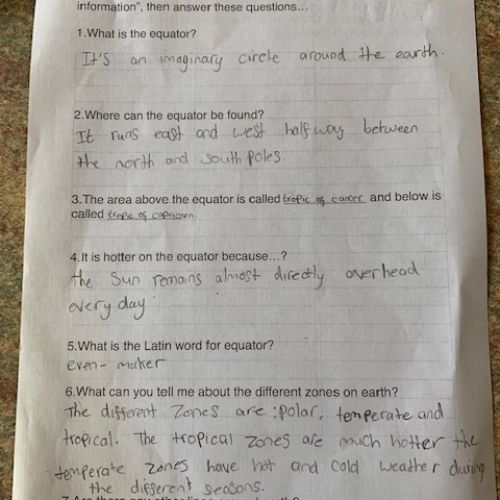 information", then answer these questions...
1.What is the equator?
It's an imaginary circle around the earth.
2.Where can the equator be found?
It runs east and west halfway between
the north and south poles.
3.The area above the equator is called tropic of cancer and below is
called tropic of capricorn
4.It is hotter on the equator because...?
the Sun remains almost directly overhead
every day
5.What is the Latin word for equator?
even-maker
6.What can you tell me about the different zones on earth?
The different Zones are :polar, temperate and
tropical. The tropical zones are much hotter the
temperate zones have hot and cold weather during
the different seasons.